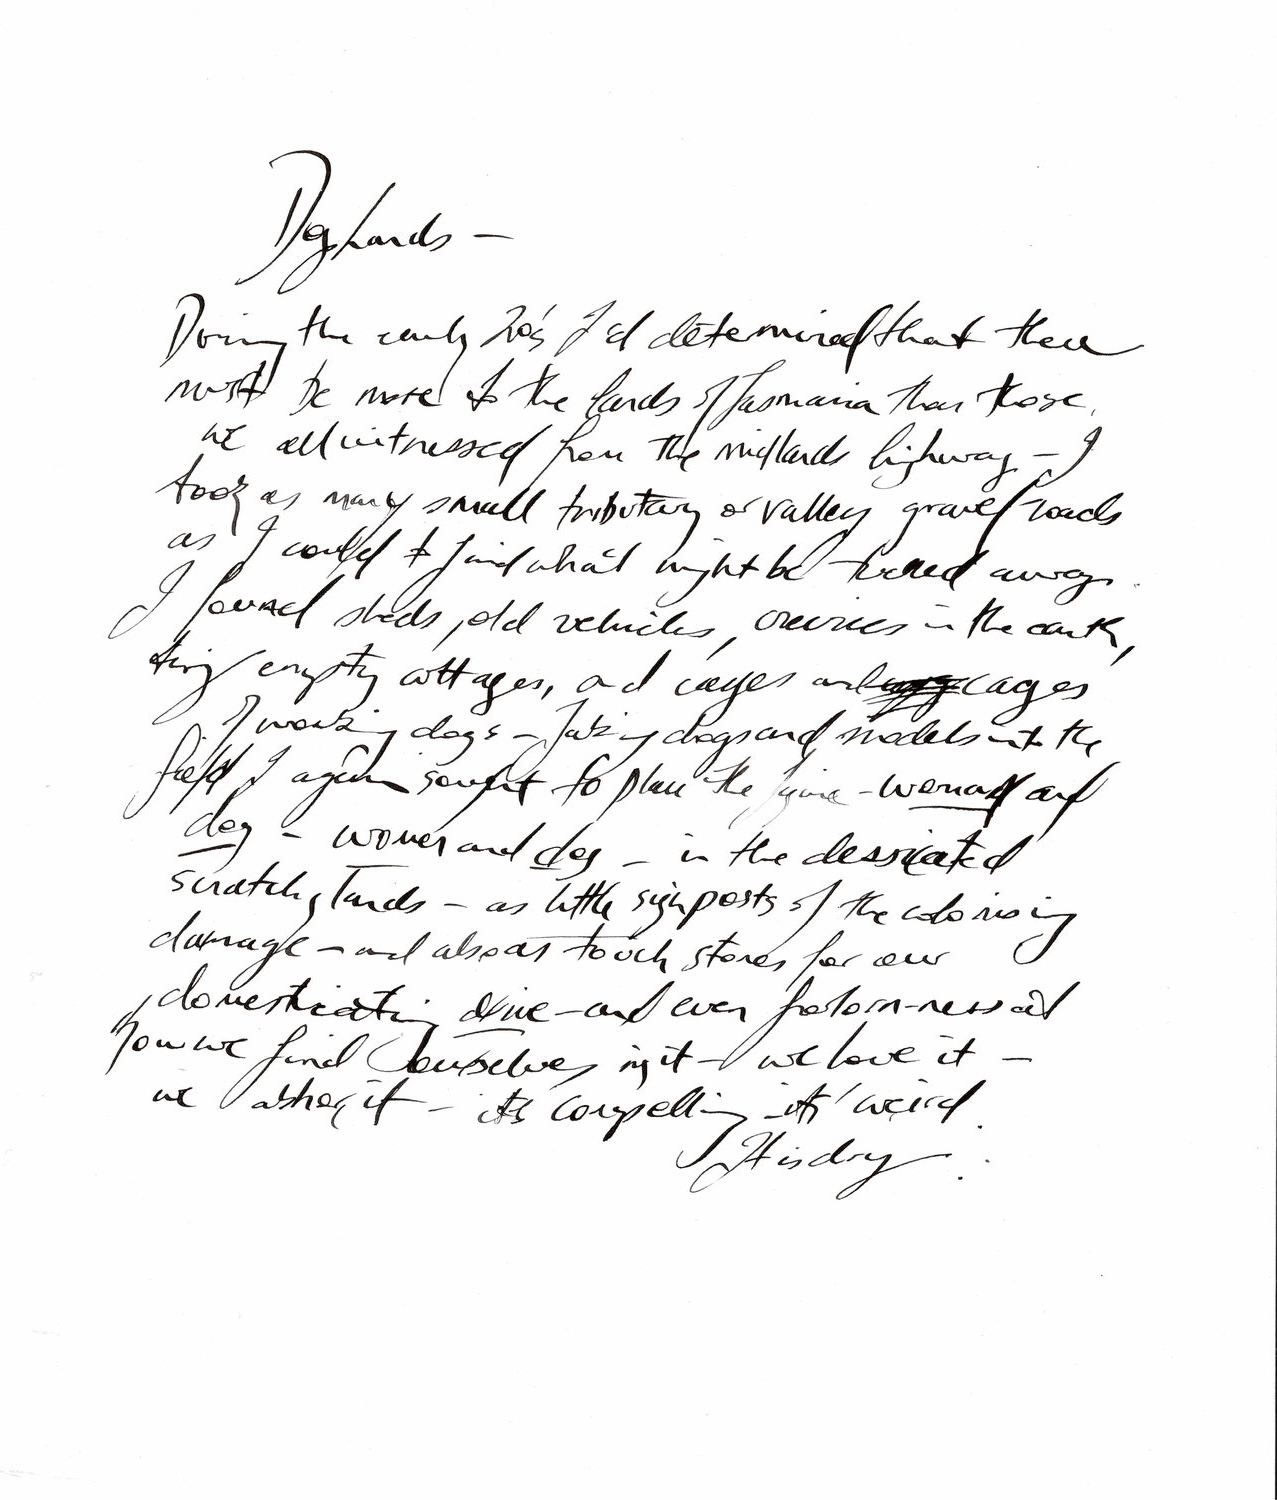 Doglands —
During the early 20's I'd determined that there
must be more to the lands of Tasmania than those
we all witnessed from the midlands highway — I
took as many small tributary or valley gravel roads
as I could to find what might be tucked away.
I found sheds, old vehicles, crevices in the earth,
tiny empty cottages, and cages and cages
of working dogs — Taking dogs and models into the
field I again sought to place the figure — woman and
dog — women and dog — in the dessicated
scratchy lands — as little signposts of the colonising
damage — and also as touch stones for our
domesticating drive — and even forlorn-ness at
how we find ourselves in it — we love it —
we it — it's compelling it's weird.
It is dry